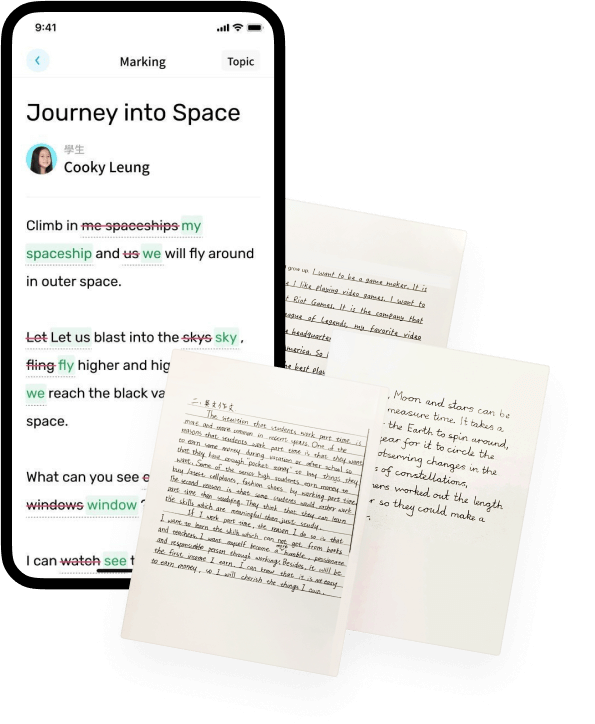 9:41
Marking
Topic
Journey into Space
學生
Cooky Leung
Climb in me spaceships my
spaceship and us we will fly around
in outer space.
Let Let us blast into the skys sky ,
fling fly higher and hig
we reach the black va
space.
What can you see e
windows window ?
I can watch see t
grow up. I want to be a game maker. It is
e I like playing video games. I want to
t Riot Games. It is the company that
eague of Legends, my favorite video
e headquarter
merica. So i
he best play
. Moon and stars can be
measure time. It takes a
the Earth to spin around,
year for it to circle the
observing changes in the
s of constellations,
ers worked out the length
r so they could make a
二、英文作文
The situation that students work part time is
more and more common in recent years. One of the
reasons that students work part time is that they want
to earn some money during vacation or after school so
that they have enough pocket money to buy things they
want. Some of the senior high students earn money to
buy latest cellphones, fashion shoes by working part time.
the second reason is that some students would rather work
part time than studying. They think that they can learn
the skills which are meaningful than just study.
If I work part time, the reason I do so is that
I want to learn the skills which can not get from books
and teachers. I want myself become a more humble, passionate
and responsible person through working. Besides, it will be
the first income I earn. I can know that it is not easy
to earn money, so I will cherish the things I own.